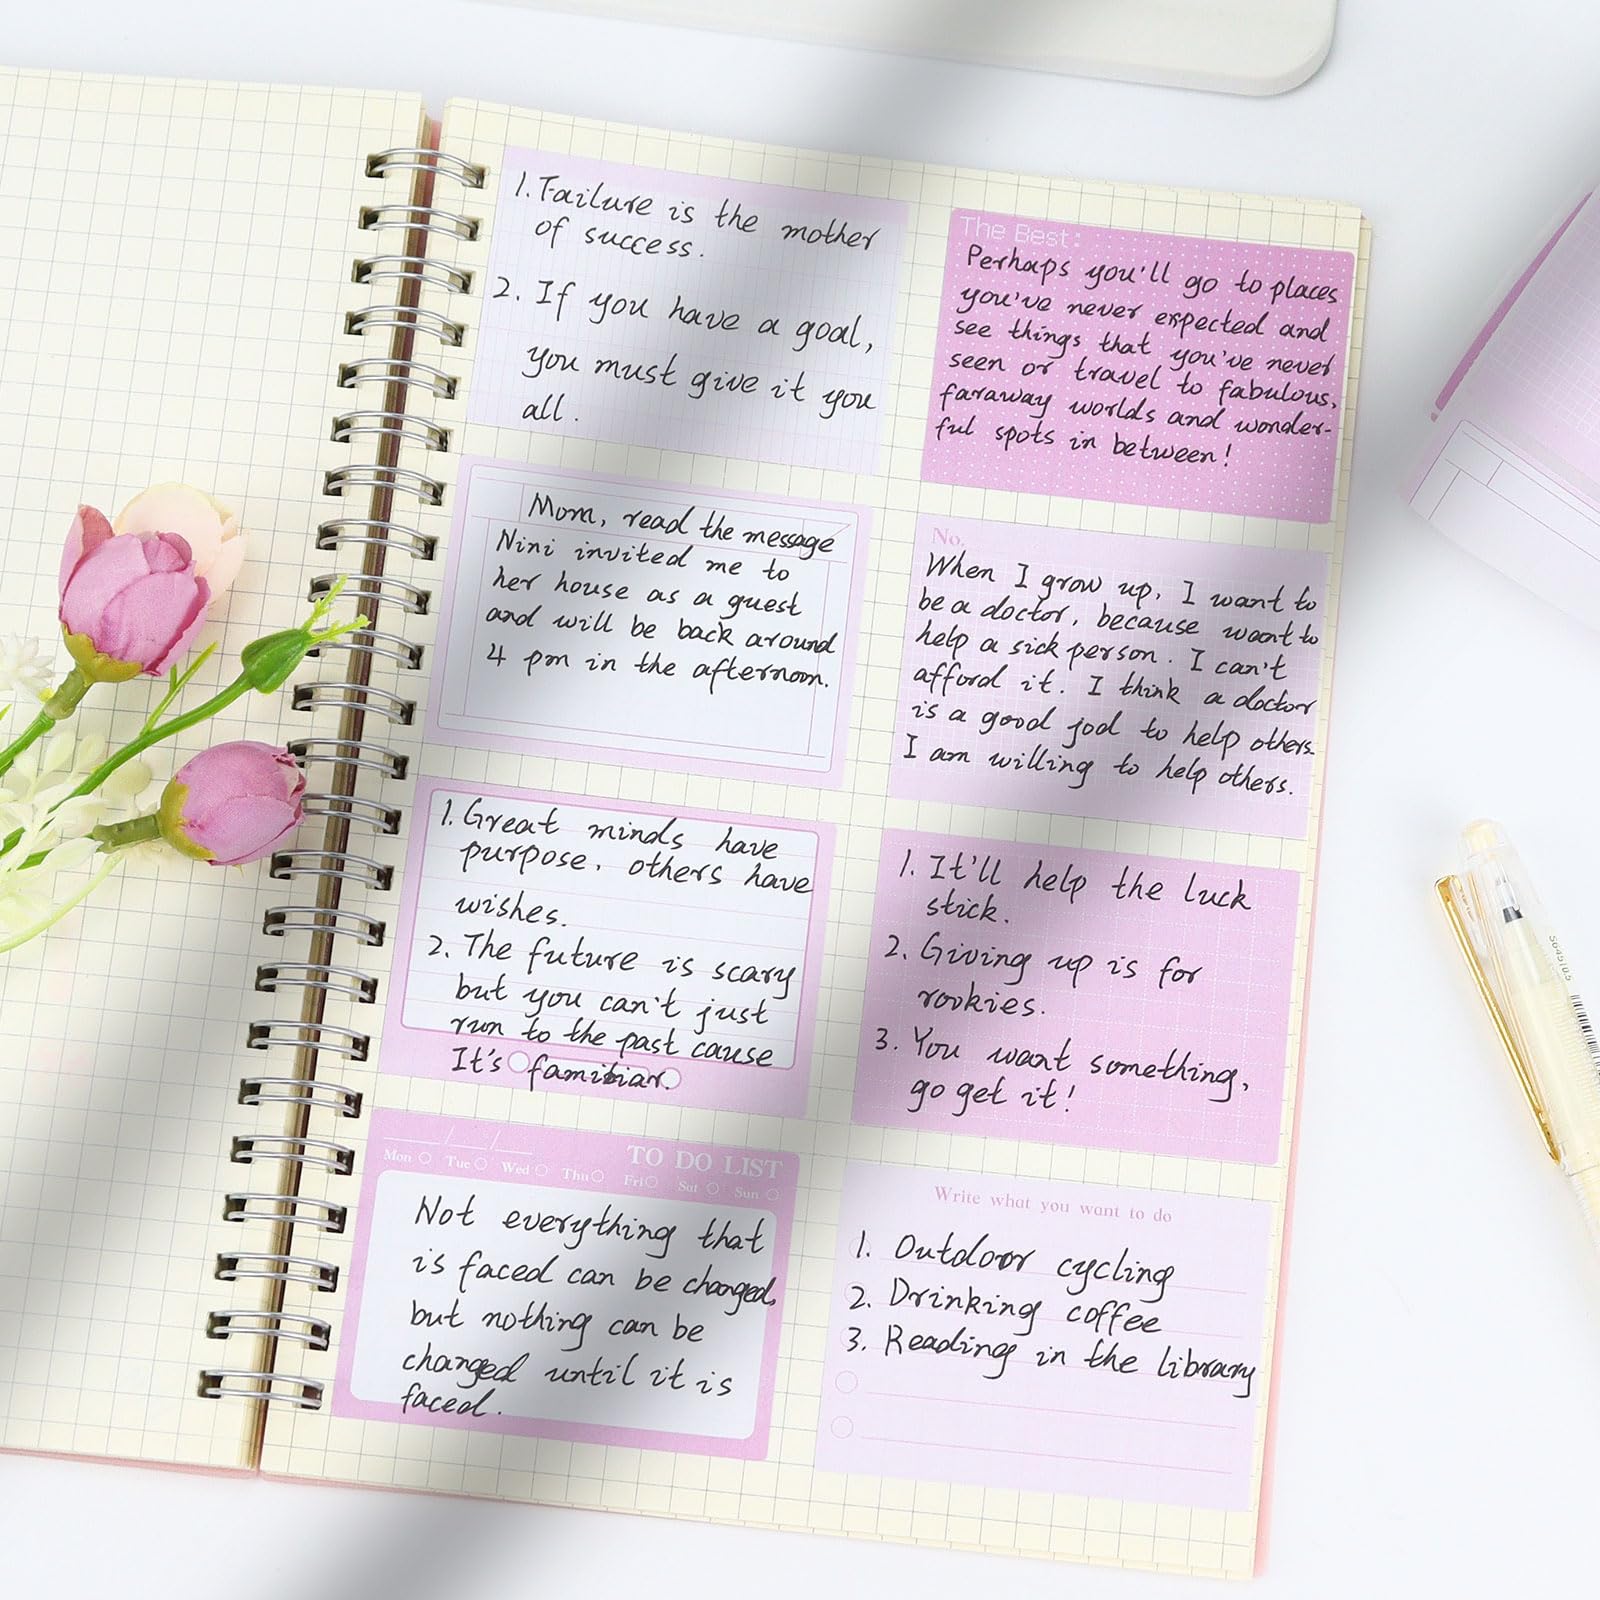 1. Failure is the mother
of success.
2. If you have a goal,
you must give it you
all.
The Best:
Perhaps you'll go to places
you've never expected and
see things that you've never
seen or travel to fabulous,
faraway worlds and wonder-
ful spots in between!
Mom, read the message
Nini invited me to
her house as a guest
and will be back around
4 pm in the afternoon.
No.
When I grow up, I want to
be a doctor, because want to
help a sick person. I can't
afford it. I think a doctor
is a good jod to help others.
I am willing to help others.
1. Great minds have
purpose, others have
wishes.
2. The future is scary
but you can't just
run to the past cause
It's familiar.
1. It'll help the luck
stick.
2. Giving up is for
rookies.
3. You want something,
go get it!
TO DO LIST
Mon Tue Wed Thu Fri Sat Sun
Not everything that
is faced can be changed,
but nothing can be
changed until it is
faced.
Write what you want to do
1. Outdoor cycling
2. Drinking coffee
3. Reading in the library